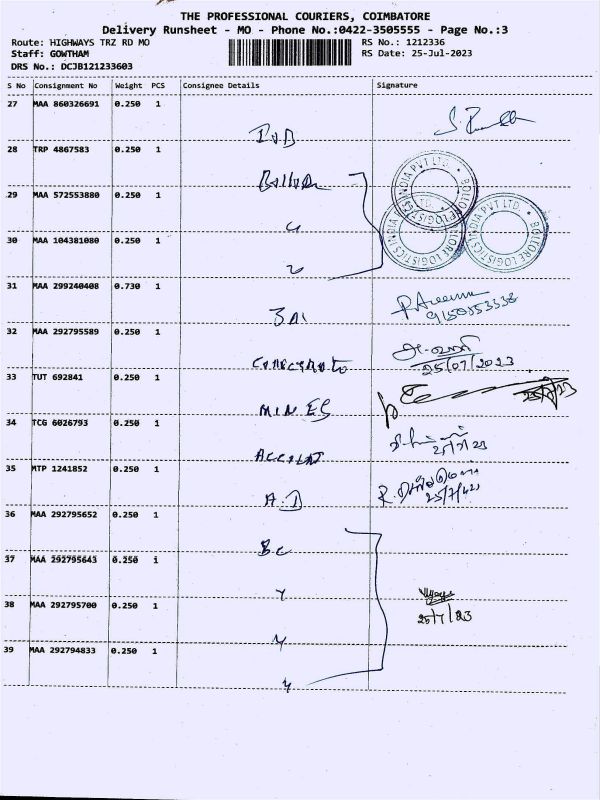 THE PROFESSIONAL COURIERS, COIMBATORE
Delivery Runsheet - MO - Phone No.:0422-3505555 - Page No.:3
Route: HIGHWAYS TRZ RD MO RS No.: 1212336
Staff: GOWTHAM RS Date: 25-Jul-2023
DRS No.: DCJB121233603
S No Consignment No Weight PCS Consignee Details Signature
27 MAA 860326691 0.250 1
28 TRP 4867583 0.250 1
29 MAA 572553880 0.250 1
BOLLORE LOGISTICS INDIA PVT LTD.
BOLLORE LOGISTICS INDIA PVT LTD.
BOLLORE LOGISTICS INDIA PVT LTD.
30 MAA 104381080 0.250 1
31 MAA 299240408 0.730 1
32 MAA 292795589 0.250 1
25/07/2023
33 TUT 692841 0.250 1
MINES
34 TCG 6026793 0.250 1
35 MTP 1241852 0.250 1
A.D
36 MAA 292795652 0.250 1
37 MAA 292795643 0.250 1
38 MAA 292795700 0.250 1
25/7/23
39 MAA 292794833 0.250 1